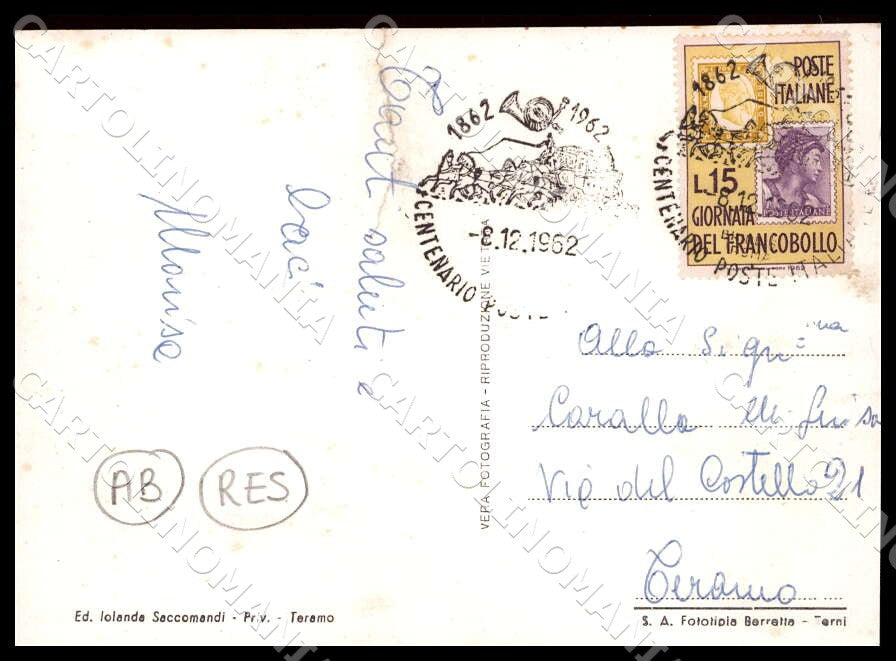 Tanti saluti e
baci
Marisa
AB RES
Ed. Iolanda Saccomandi - Priv. - Teramo
VERA FOTOGRAFIA - RIPRODUZIONE VIETATA
1862 1962
CENTENARIO POSTE
-8.12.1962
POSTE
ITALIANE
L.15
POSTE ITALIANE
GIORNATA
DEL FRANCOBOLLO
1862
CENTENARIO POSTE ITALIA
-8.12.1962
Alla Sig.na
Caralla M. Luisa
Via del Castello 21
Teramo
S. A. Fototipia Berretta - Terni
CARTOLINOMANIA